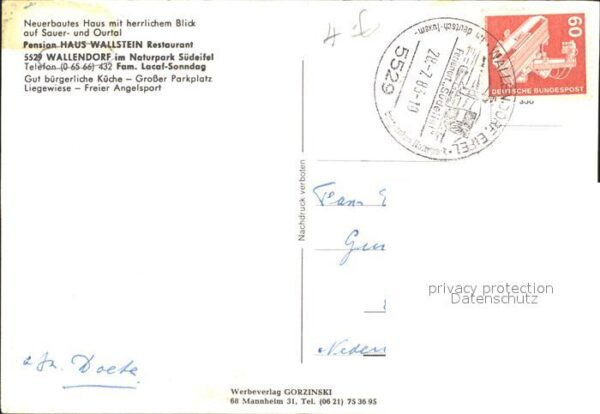 Neuerbautes Haus mit herrlichem Blick
auf Sauer- und Ourtal
Pension HAUS WALLSTEIN Restaurant
5529 WALLENDORF im Naturpark Südeifel
Telefon (0 65 66) 432 Fam. Lacaf-Sonndag
Gut bürgerliche Küche – Großer Parkplatz
Liegewiese – Freier Angelsport
5529 WALLENDORF, EIFEL
Ferienort Südeifel
60
DEUTSCHE BUNDESPOST
Nachdruck verboten
Fam.
privacy protection
Datenschutz
Werbeverlag GORZINSKI
68 Mannheim 31, Tel. (06 21) 75 36 95